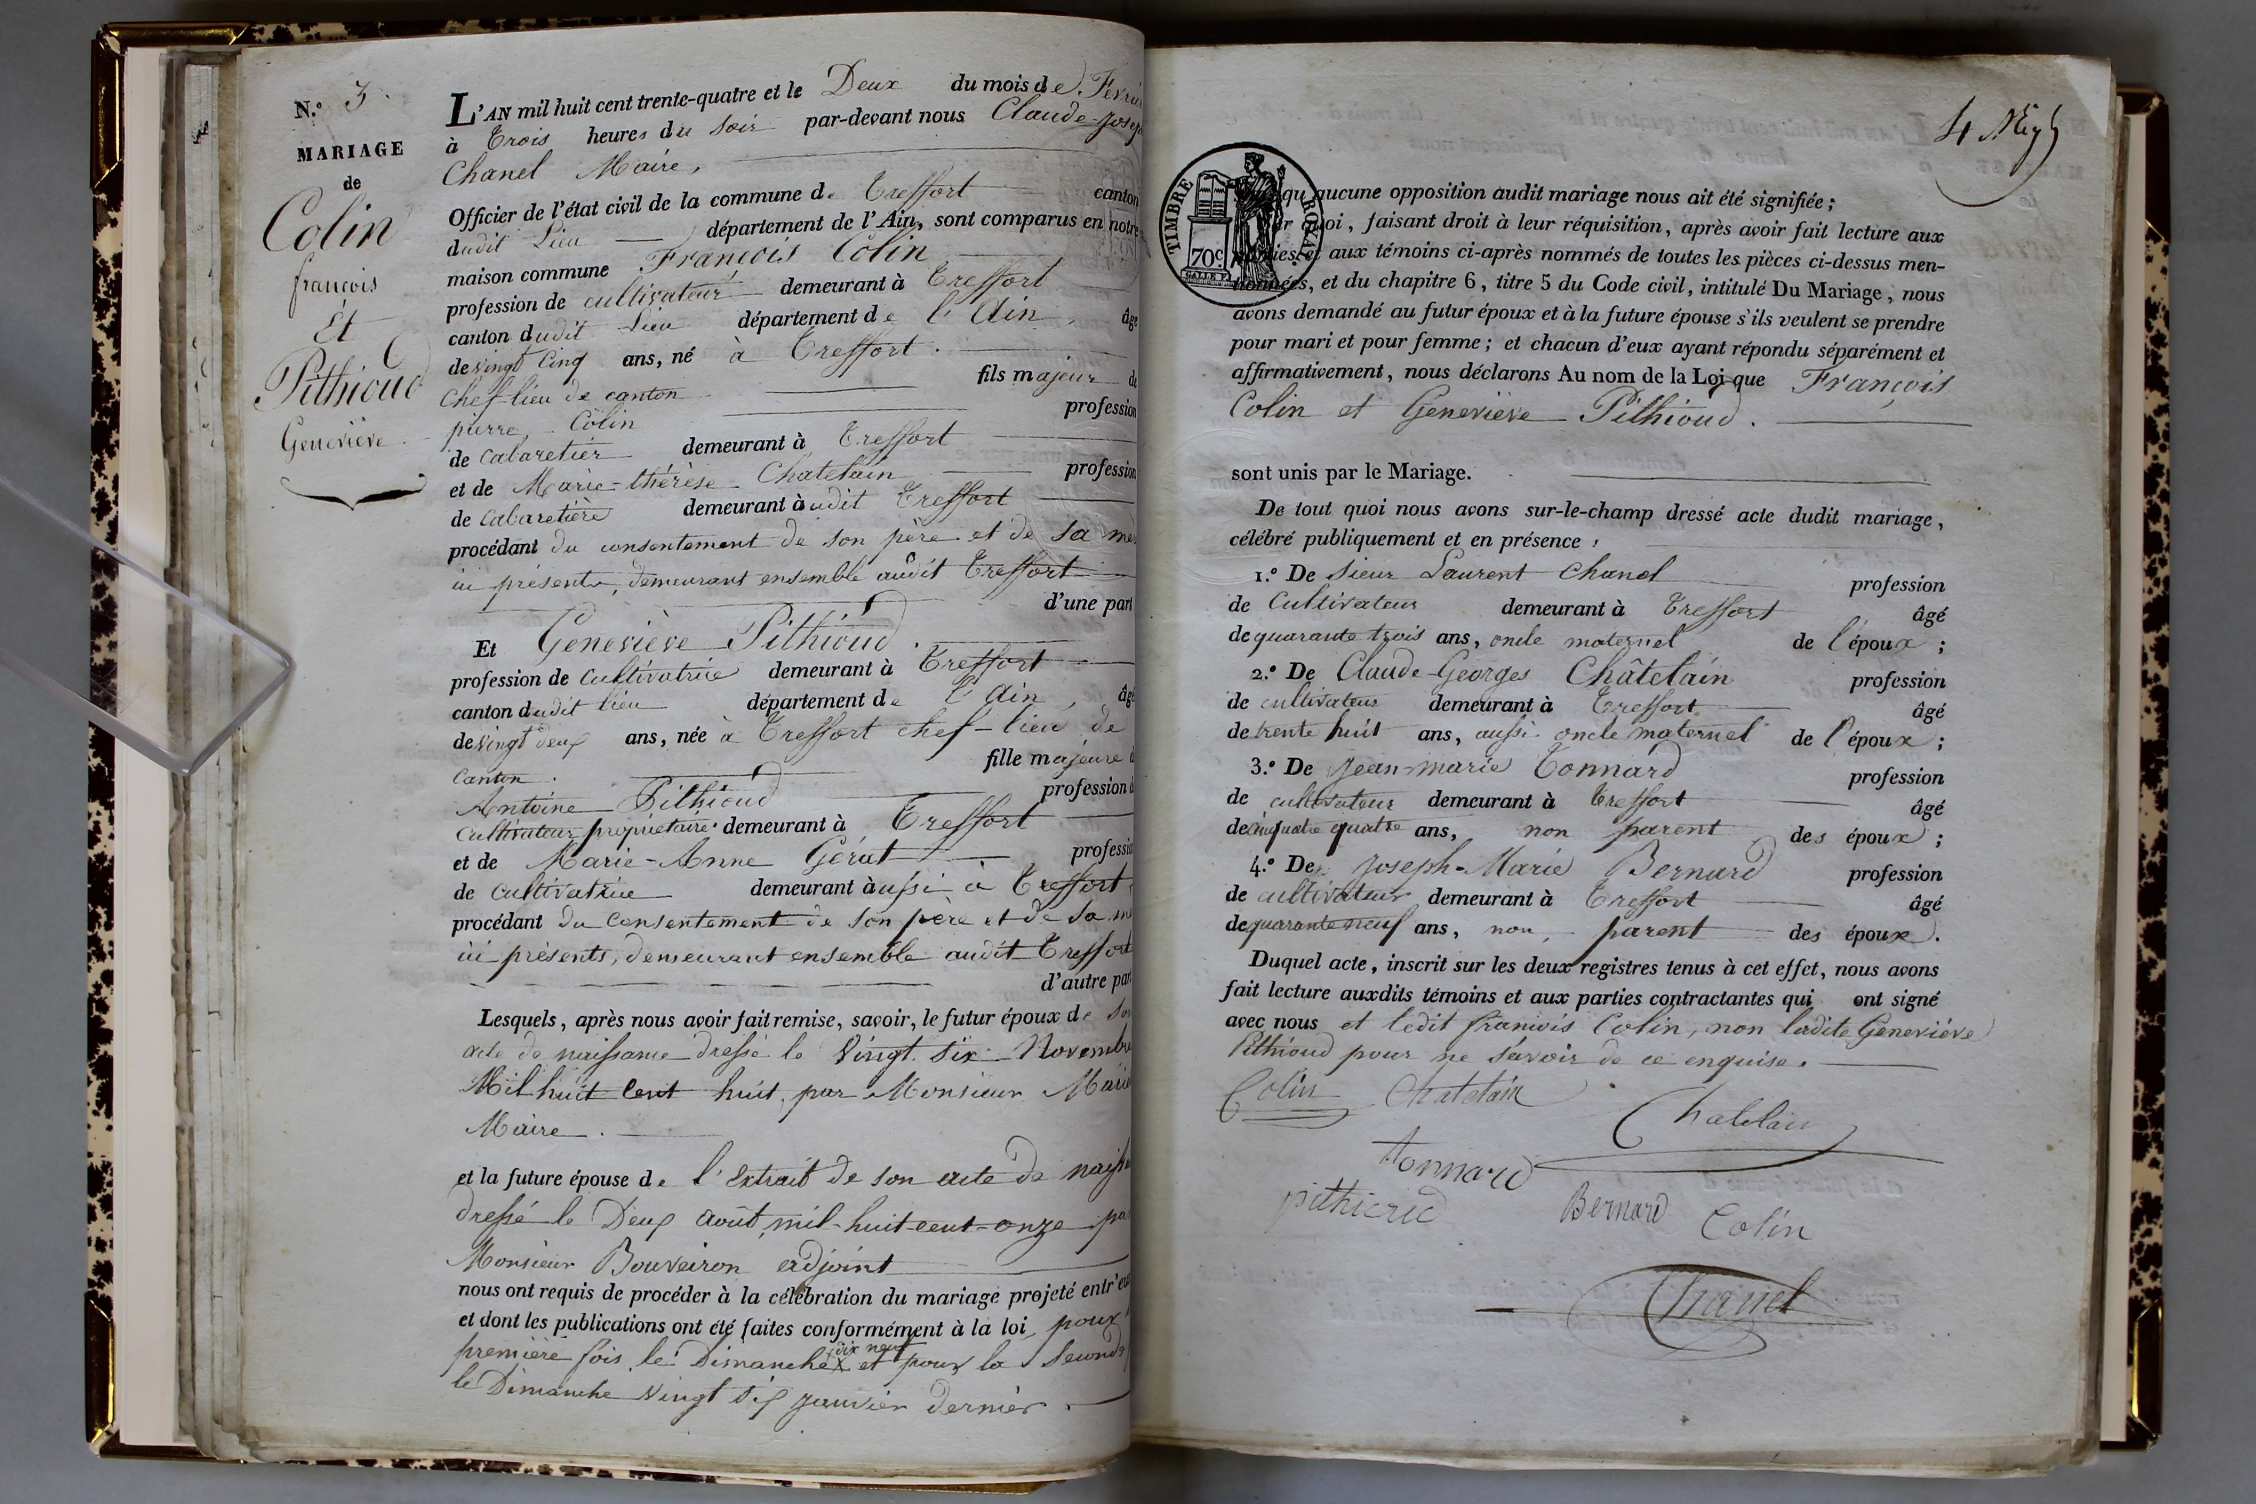 N.º 3.
MARIAGE
de
Colin
françois
Et
Pithioud
Geneviève.
L'AN mil huit cent trente-quatre et le Deux du mois de Févrie
à Trois heures du soir par-devant nous Claude-Josep
Chanel Maire,
Officier de l'état civil de la commune de Treffort canton
dudit Lieu département de l'Ain, sont comparus en notre
maison commune François Colin
profession de cultivateur demeurant à Treffort
canton dudit Lieu département de l'Ain, âgé
de vingt Cinq ans, né à Treffort.
Chef-lieu de canton fils majeur de
pierre Colin profession
de cabaretier demeurant à Treffort
et de Marie-thérèse Chatelain profession
de cabaretière demeurant audit Treffort
procédant du consentement de son père et de sa mer
ici présents, demeurant ensemble audit Treffort
d'une part
Et Geneviève Pithioud.
profession de cultivatrice demeurant à Treffort
canton dudit lieu département de l'Ain, âgé
de vingt deux ans, née à Treffort chef-lieu de
canton. fille majeure d
Antoine Pithioud profession d
cultivateur propriétaire. demeurant à Treffort
et de Marie-Anne Gérat professio
de cultivatrice demeurant aussi à Treffort
procédant du consentement de son père et de sa m
ici présents, demeurant ensemble audit Treffort
d'autre par
Lesquels, après nous avoir fait remise, savoir, le futur époux de so
acte de naissance dressé le Vingt six Novembre
Mil huit Cent huit, par Monsieur
Maire.
et la future épouse de l'extrait de son acte de naiss
dressé le Deux août, mil-huit-cent-onze pa
Monsieur Bouveiron adjoint
nous ont requis de procéder à la célébration du mariage projeté entr'eu
et dont les publications ont été faites conformément à la loi, pour
dix neuf
première fois le Dimanche X et pour la Second
le Dimanche vingt six janvier dernier.
4
TIMBRE ROYAL
70c
qu'aucune opposition audit mariage nous ait été signifiée;
quoi, faisant droit à leur réquisition, après avoir fait lecture aux
parties et aux témoins ci-après nommés de toutes les pièces ci-dessus men-
tionnées, et du chapitre 6, titre 5 du Code civil, intitulé Du Mariage, nous
avons demandé au futur époux et à la future épouse s'ils veulent se prendre
pour mari et pour femme; et chacun d'eux ayant répondu séparément et
affirmativement, nous déclarons Au nom de la Loi que François
Colin et Geneviève Pithioud.
sont unis par le Mariage.
De tout quoi nous avons sur-le-champ dressé acte dudit mariage,
célébré publiquement et en présence,
1.º De Sieur Laurent Chanel profession
de Cultivateur demeurant à Treffort âgé
de quarante trois ans, oncle maternel de l'époux;
2.º De Claude-Georges Châtelain profession
de cultivateur demeurant à Treffort âgé
de trente huit ans, aussi oncle maternel de l'époux;
3.º De Jean-marie Tonnard profession
de cultivateur demeurant à Treffort âgé
de quatre ans, non parent des époux;
4.º De Joseph-Marie Bernard profession
de cultivateur demeurant à Treffort âgé
de quarante neuf ans, non parent des époux.
Duquel acte, inscrit sur les deux registres tenus à cet effet, nous avons
fait lecture auxdits témoins et aux parties contractantes qui ont signé
avec nous et ledit françois Colin, non ladite Geneviève
Pithioud pour ne savoir de ce enquise.
Colin Chatelain Chatelain
tonnard
pithioud Bernard Colin
Chanel